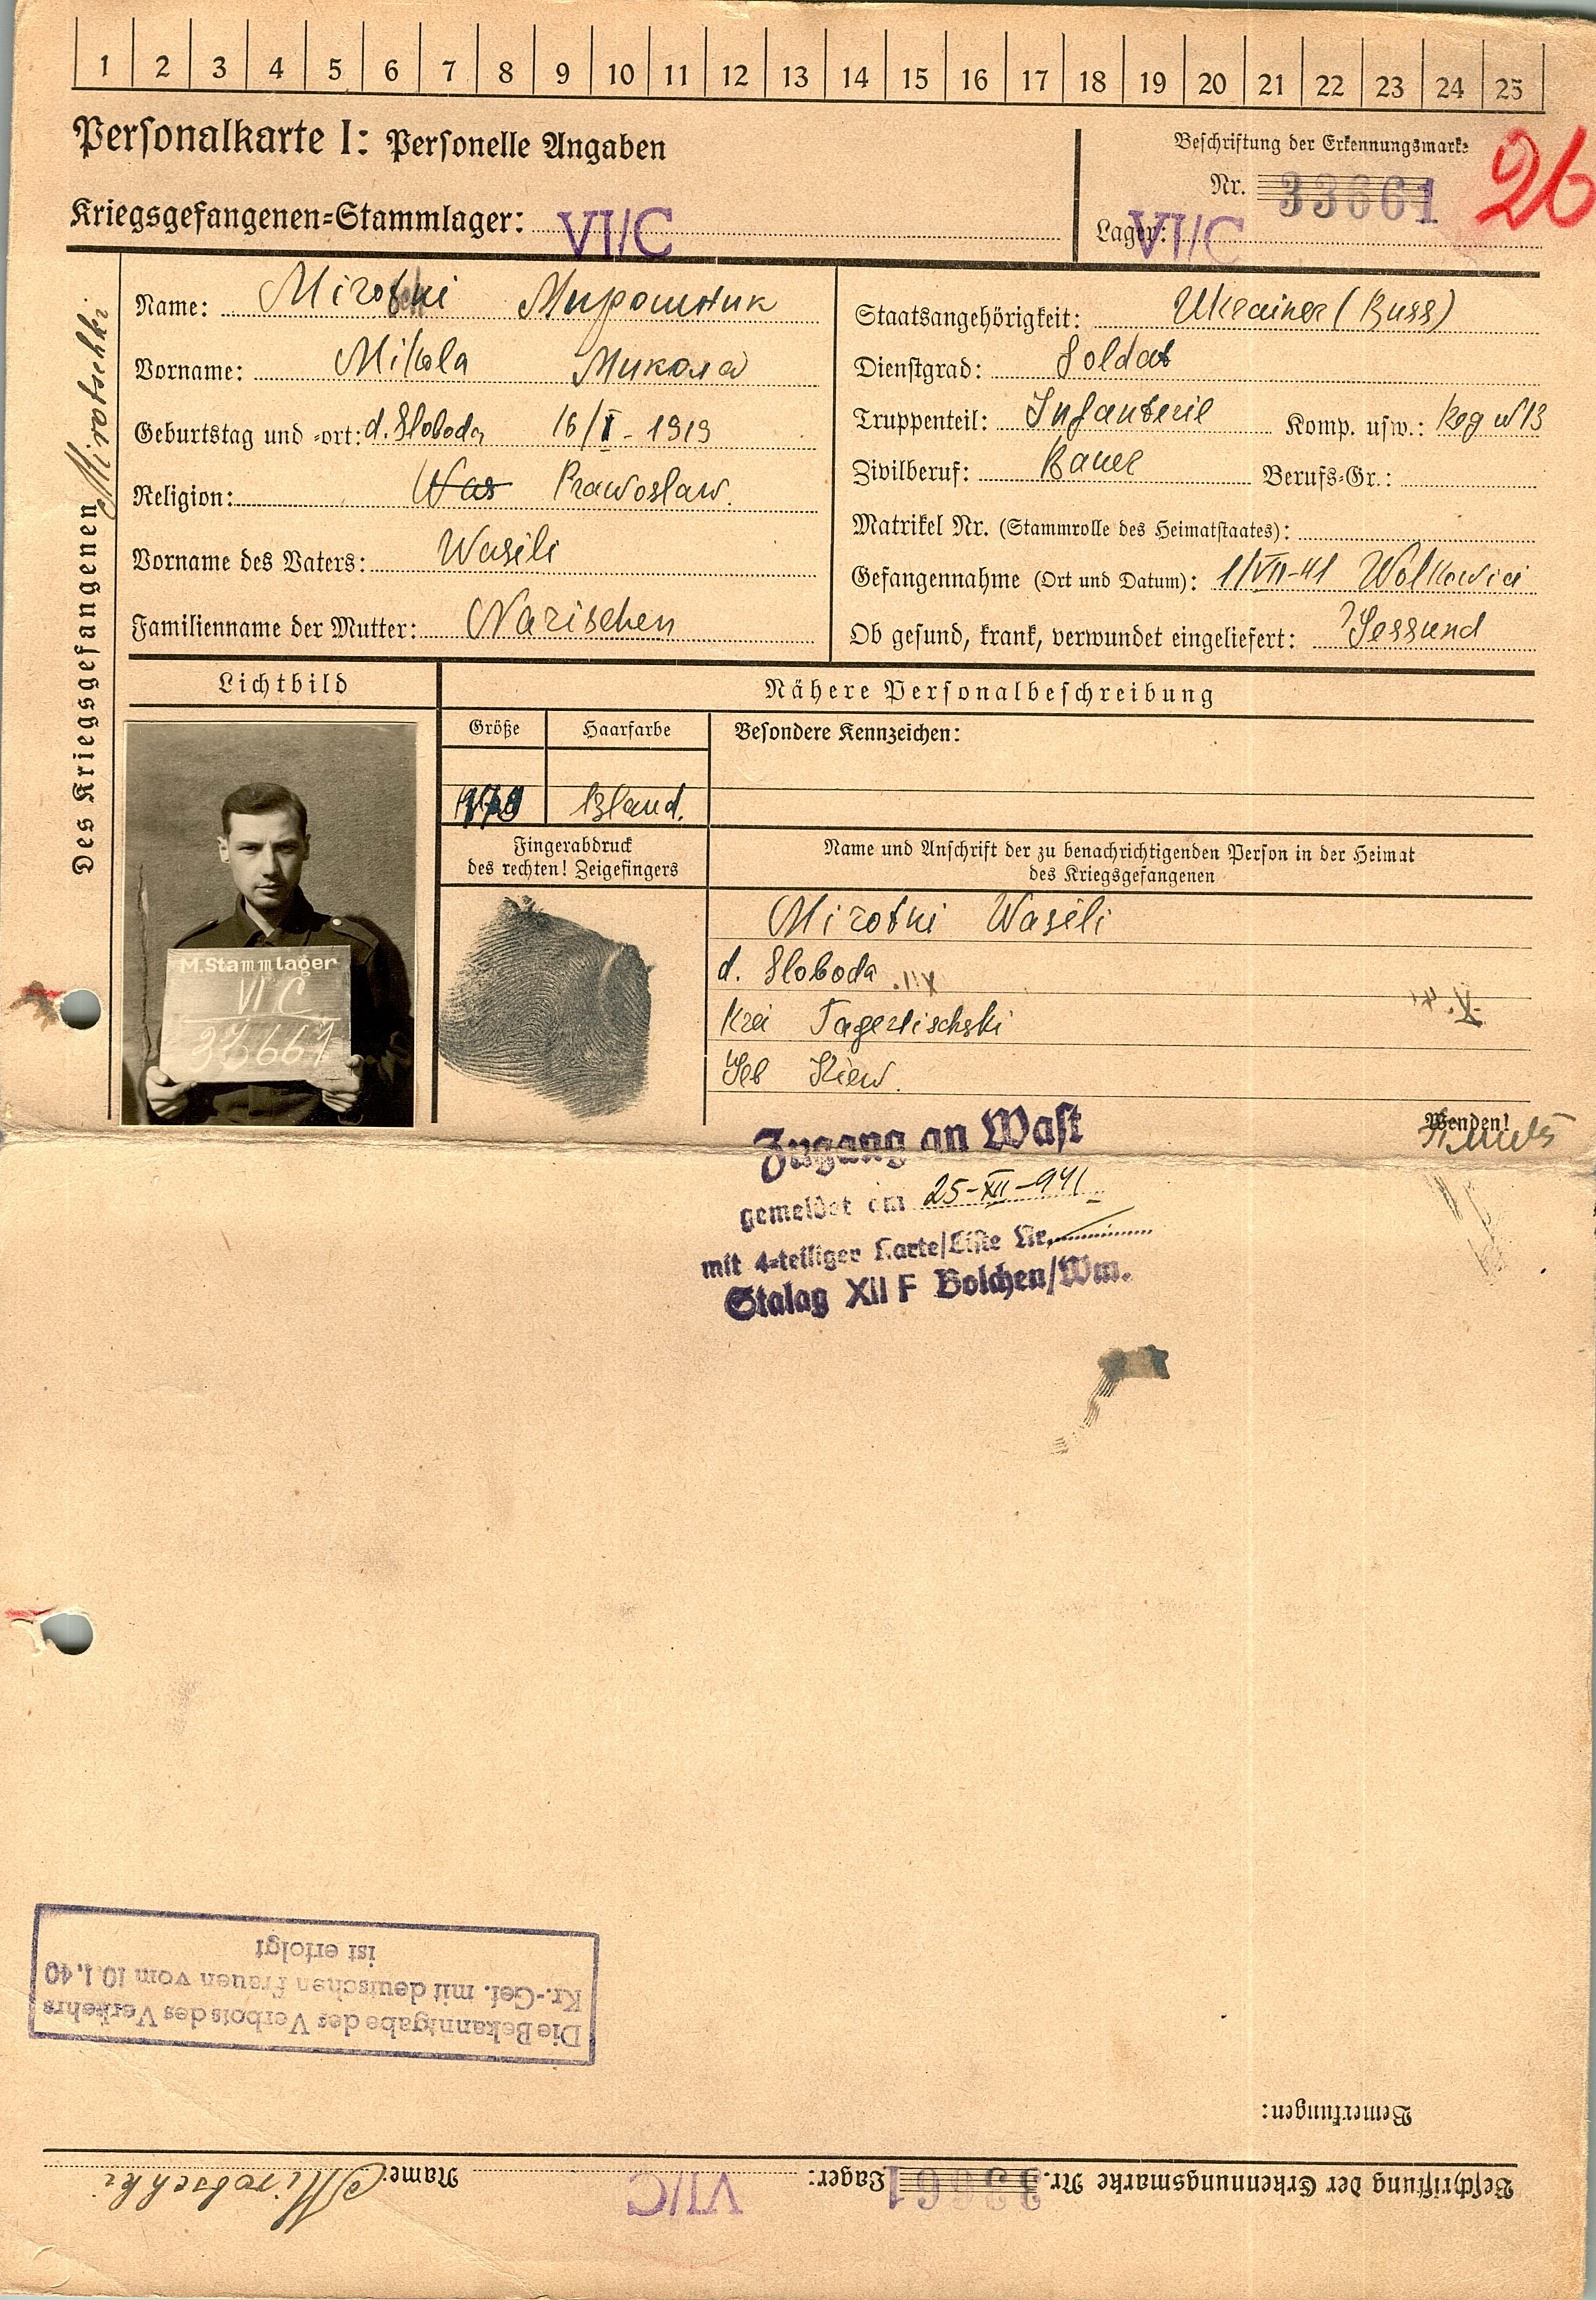 1 2 3 4 5 6 7 8 9 10 11 12 13 14 15 16 17 18 19 20 21 22 23 24 25
Personalkarte I: Personelle Angaben
Kriegsgefangenen=Stammlager: VI/C
Beschriftung der Erkennungsmarke
Nr. 33661
26
Lager: VI/C
Des Kriegsgefangenen Mirotschki
Name: Мирошник
Vorname: Mikola Микола
Geburtstag und =ort: d. Sloboda 16/I - 1919
Religion: Was Prawoslaw.
Vorname des Vaters: Wasili
Familienname der Mutter: Narischen
Staatsangehörigkeit: Ukrainer (Russ)
Dienstgrad: Soldat
Truppenteil: Infanterie Komp. usw.: Reg N 13
Zivilberuf: Bauer Berufs=Gr.:
Matrikel Nr. (Stammrolle des Heimatstaates):
Gefangennahme (Ort und Datum): 1/VII-41 Wolkowici
Ob gesund, krank, verwundet eingeliefert: Gessund
Lichtbild
Nähere Personalbeschreibung
Größe Haarfarbe Besondere Kennzeichen:
Bland.
Fingerabdruck
des rechten! Zeigefingers
Name und Anschrift der zu benachrichtigenden Person in der Heimat
des Kriegsgefangenen
M.Stammlager
VI C
33661
Mirotki Wasili
d. Sloboda
Krei Tagerlischski
Geb Kiew.
Wenden!
Zugang an Wast
gemeldet am 25-XII-941
mit 4=teiliger Karte/Liste Nr.
Stalag XII F Bolchen/Wm.
Die Bekanntgabe des Verbots des Verkehrs
Kr.-Gef. mit deutschen Frauen vom 10.1.40
ist erfolgt
Bemerkungen:
Beschriftung der Erkennungsmarke Nr. 33661 Lager: VI/C Name: Mirotschki